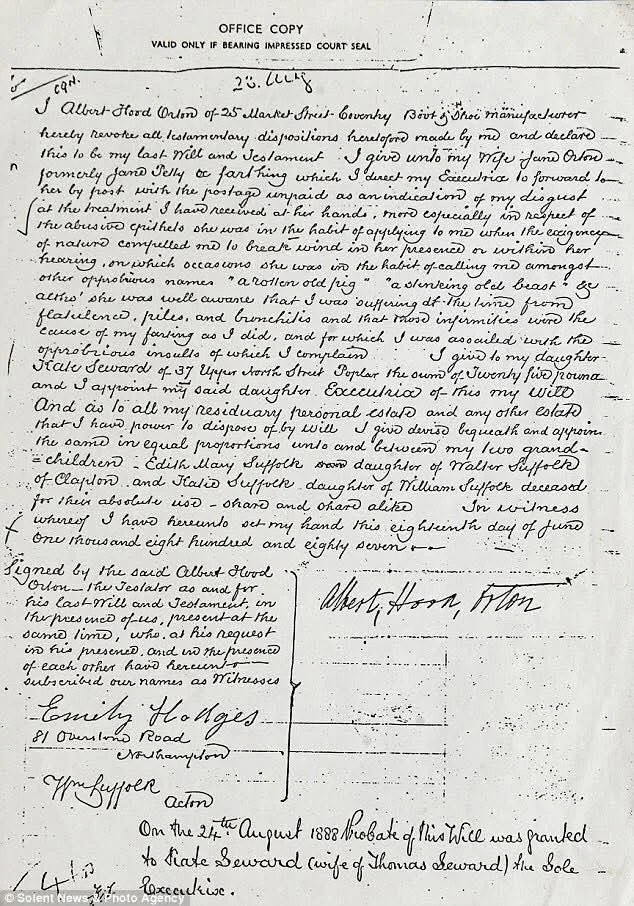 OFFICE COPY
VALID ONLY IF BEARING IMPRESSED COURT SEAL
I Albert Hood Orton of 25 Market Street Coventry Boot & Shoe Manufacturer
hereby revoke all testamentary dispositions heretofore made by me and declare
this to be my last Will and Testament I give unto my Wife Jane Orton
formerly Jane Telly a farthing which I direct my Executrix to forward to
her by post with the postage unpaid as an indication of my disgust
at the treatment I have received at her hands, more especially in respect of
the abusive epithets she was in the habit of applying to me when the exigency
of nature compelled me to break wind in her presence or within her
hearing, on which occasions she was in the habit of calling me amongst
other opprobious names "a rotten old pig" "a stinking old beast" &c
altho' she was well aware that I was suffering at the time from
flatulence, piles, and bunchitis and that those infirmities were the
cause of my farting as I did, and for which I was assailed with the
opprobrious insults of which I complain I give to my daughter
Kate Seward of 37 Upper North Street Poplar the sum of Twenty five pound
and I appoint my said daughter Executrix of this my Will
And as to all my residuary personal estate and any other estate
that I have power to dispose of by will I give devise bequeath and appoin
the same in equal proportions unto and between my two grand-
=children - Edith Mary Suffolk daughter of Walter Suffolk
of Clapton and Katie Suffolk daughter of William Suffolk deceased
for their absolute use - share and share alike In witness
whereof I have hereunto set my hand this eighteenth day of June
One thousand eight hundred and eighty seven
Signed by the said Albert Hood
Orton - the Testator as and for
his last Will and Testament, in
the presence of us, present at the
same time, who, at his request
in his presence, and in the presence
of each other have hereunto
subscribed our names as Witnesses
Albert, Hood, Orton
Emily Hodges
81 Overstone Road
Northampton
Wm Suffolk
Acton
On the 24th August 1888 Probate of this Will was granted
to Kate Seward (wife of Thomas Seward) the Sole
Executrix.
© Solent News & Photo Agency